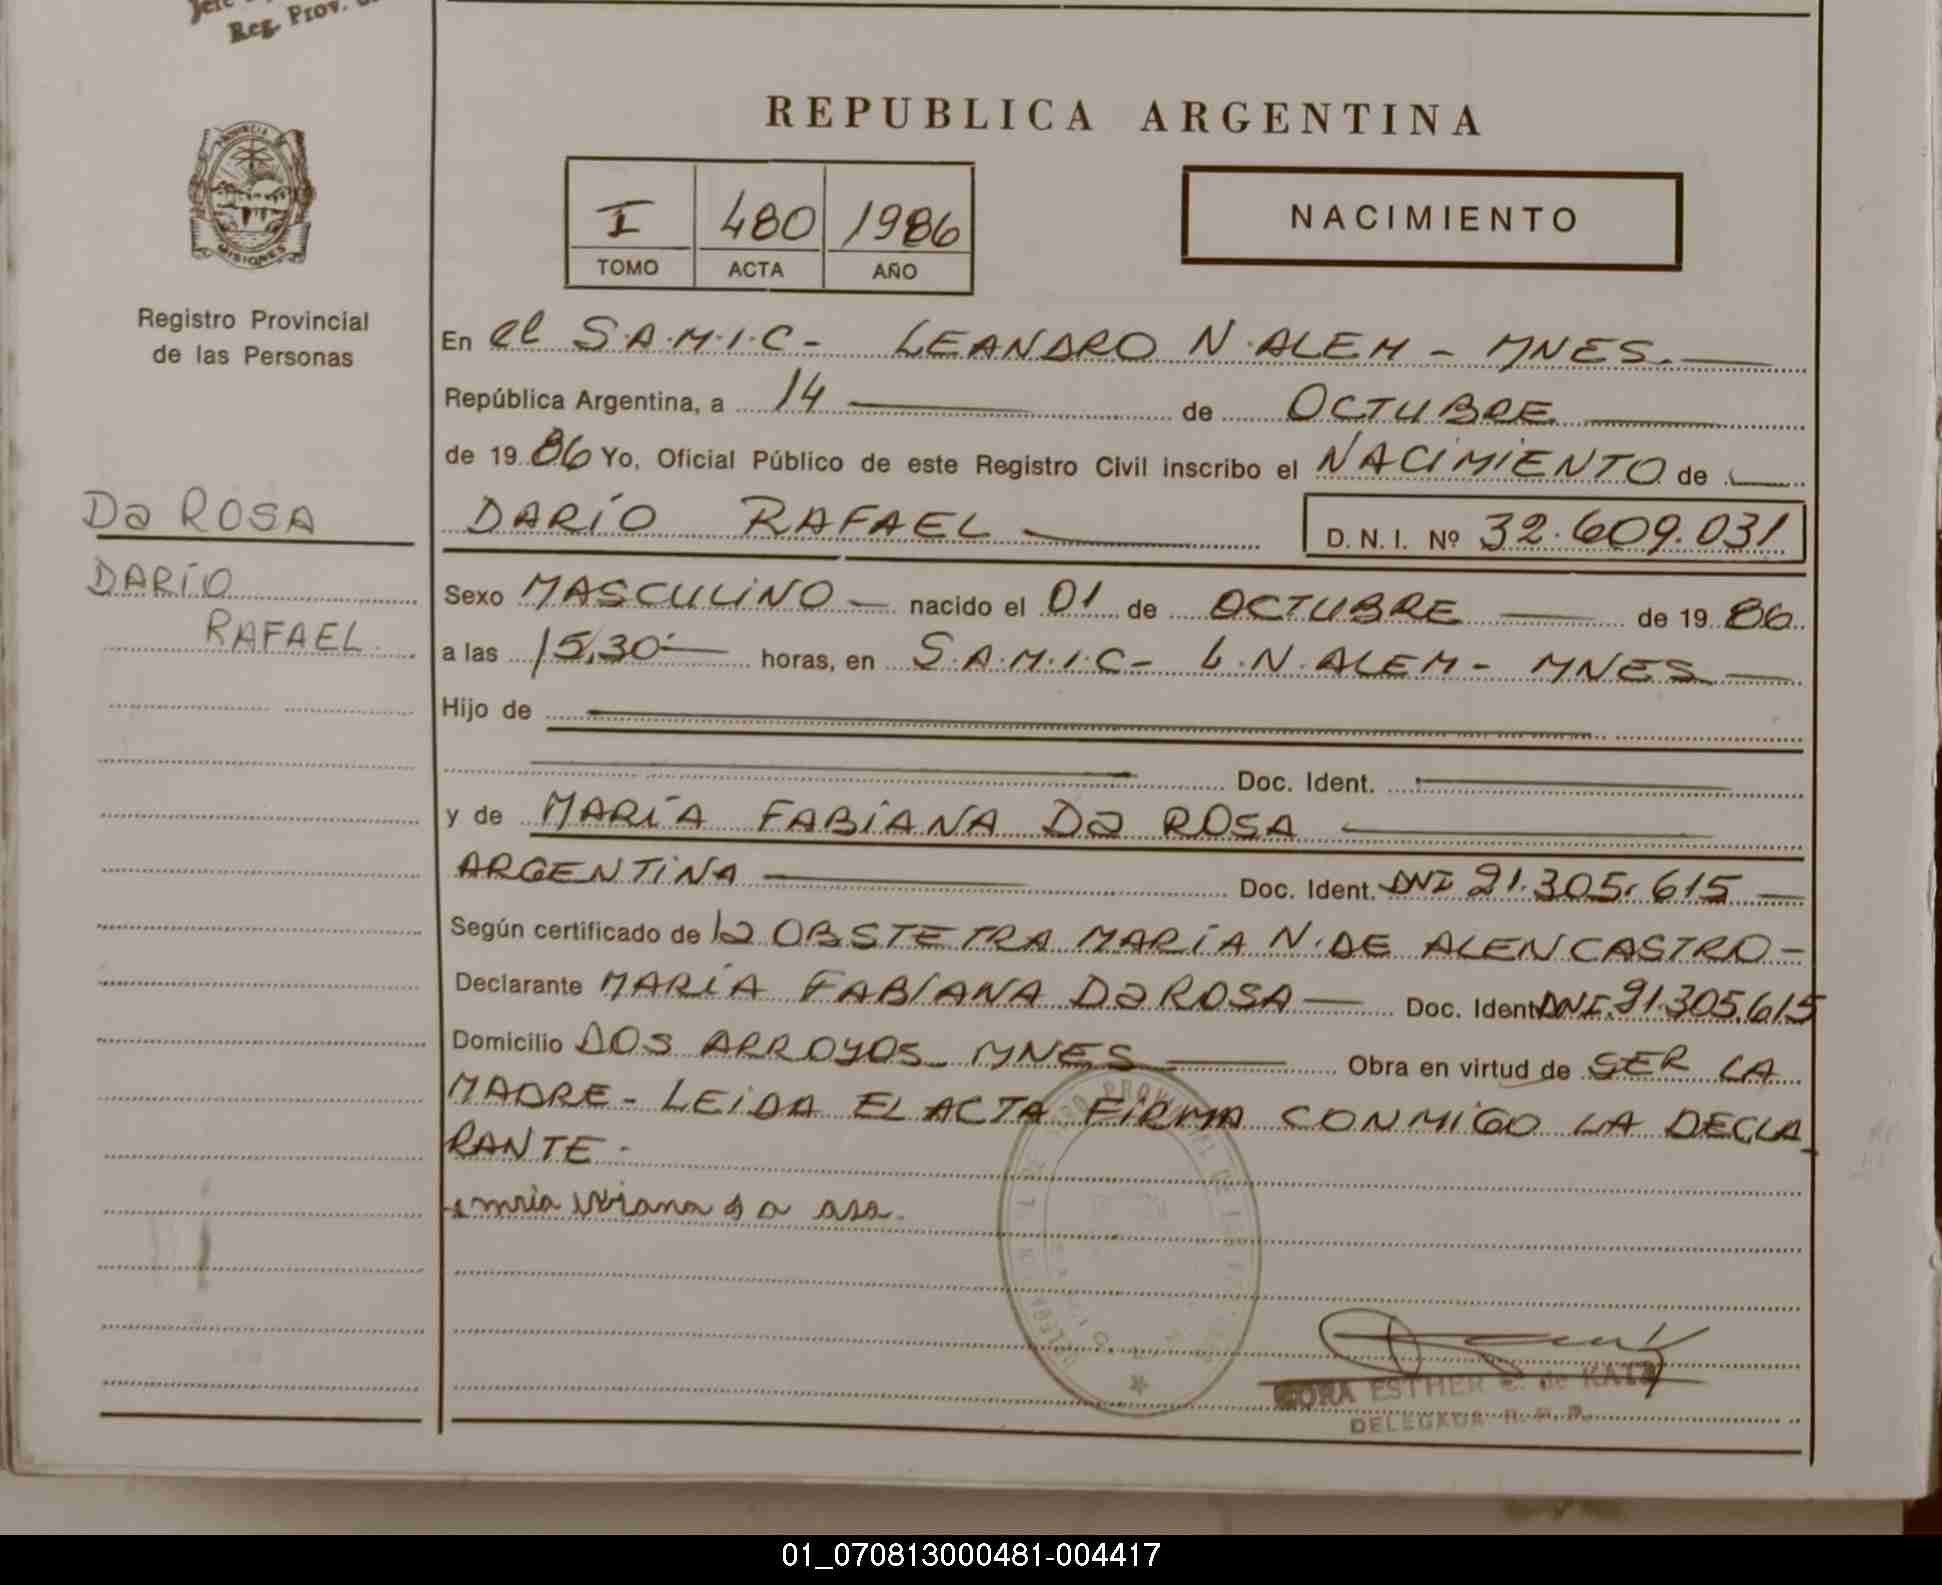 Reg. Prov.
PROVINCIA
MISIONES
Registro Provincial
de las Personas
Da ROSA
DARÍO
RAFAEL.
REPUBLICA ARGENTINA
I 480 1986
TOMO ACTA AÑO
NACIMIENTO
En el S.A.M.I.C- LEANDRO N. ALEM - MNES.
República Argentina, a 14 de OCTUBRE
de 1986 Yo, Oficial Público de este Registro Civil inscribo el NACIMIENTO de
DARÍO RAFAEL D. N. I. Nº 32.609.031
Sexo MASCULINO nacido el 01 de OCTUBRE de 1986
a las 15,30 horas, en S.A.M.I.C- L.N. ALEM - MNES
Hijo de
Doc. Ident.
y de MARÍA FABIANA Da ROSA
ARGENTINA Doc. Ident. DNI 21.305.615
Según certificado de la OBSTETRA MARÍA N. DE ALENCASTRO-
Declarante MARÍA FABIANA Da ROSA Doc. Ident DNI.21.305.615
Domicilio DOS ARROYOS MNES Obra en virtud de SER LA
MADRE - LEIDA EL ACTA FIRMA CONMIGO LA DECLA
RANTE -
ESTHER de KATZ
DELEGADA
01_070813000481-004417